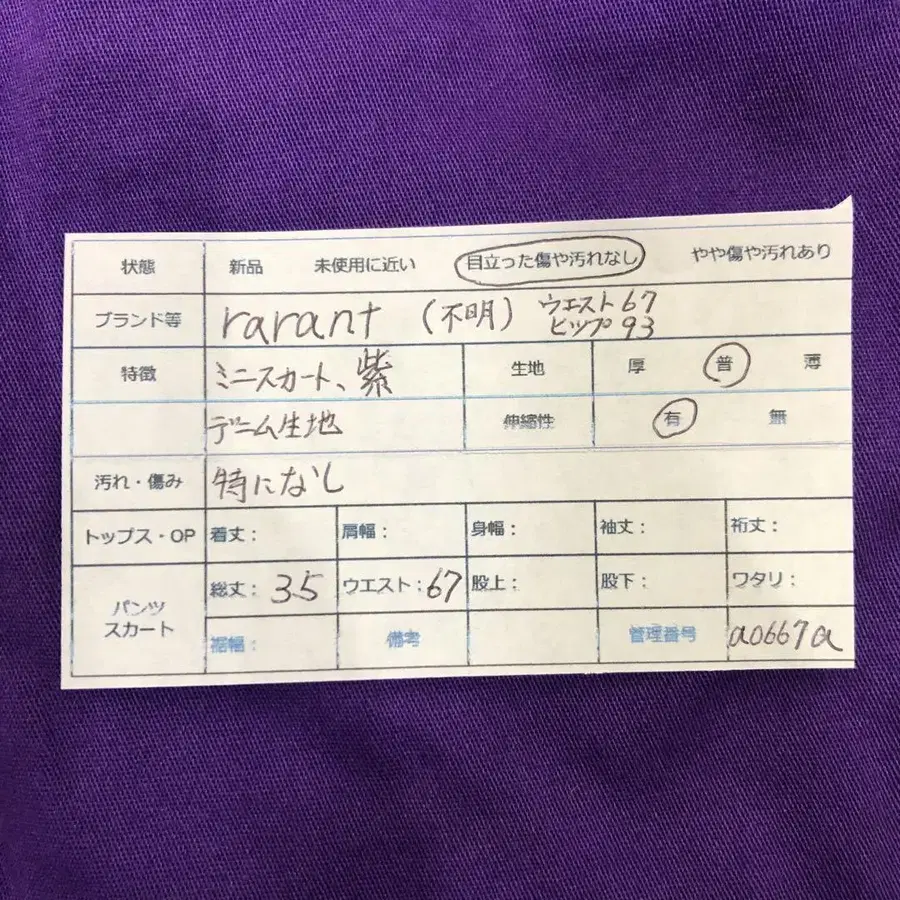 状態 新品 未使用に近い 目立った傷や汚れなし やや傷や汚れあり
ブランド等 rarant (不明) ウエスト67
ヒップ93
特徴 ミニスカート、紫 生地 厚 普 薄
デニム生地 伸縮性 有 無
汚れ・傷み 特になし
トップス・OP 着丈: 肩幅: 身幅: 袖丈: 裄丈:
パンツ 総丈:35 ウエスト:67 股上: 股下: ワタリ:
スカート 裾幅: 備考 管理番号 a0667a